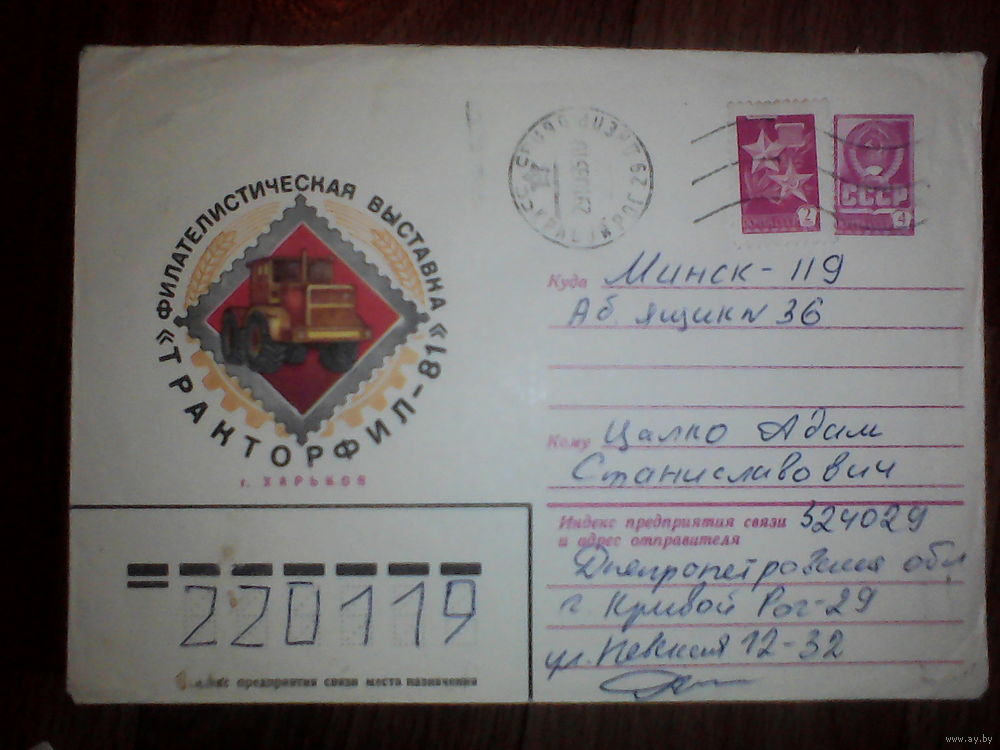 ФИЛАТЕЛИСТИЧЕСКАЯ ВЫСТАВКА
"ТРАКТОРФИЛ-81"
г. ХАРЬКОВ
2
СССР
4
Куда Минск-119
Аб. ящик N 36
Кому Цалко Адам
Станиславович
Индекс предприятия связи
и адрес отправителя
324029
Днепропетровская обл
г. Кривой Рог-29
ул. Невская 12-32
220119
предприятия связи места назначения
www.ay.by